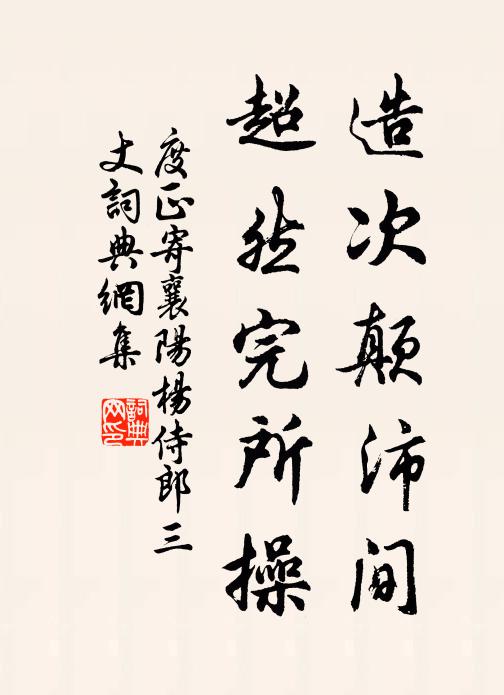 造次顛沛間
超然完所操
度正寄襄陽楊侍郎三
丈詞典網集
詞典
网印